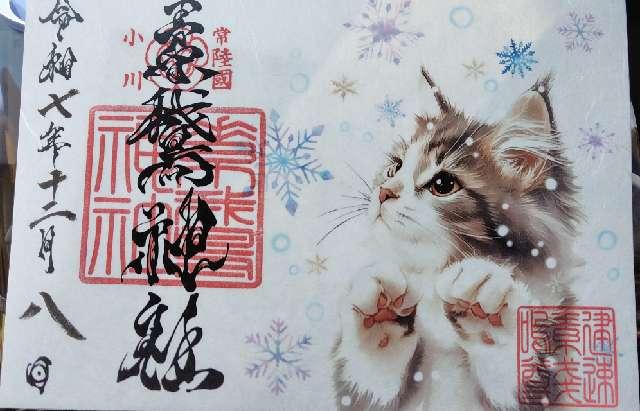 常陸國
小川
素鵞神社
素鵞
神社
令和七年十二月八日
建速
素戔
嗚尊